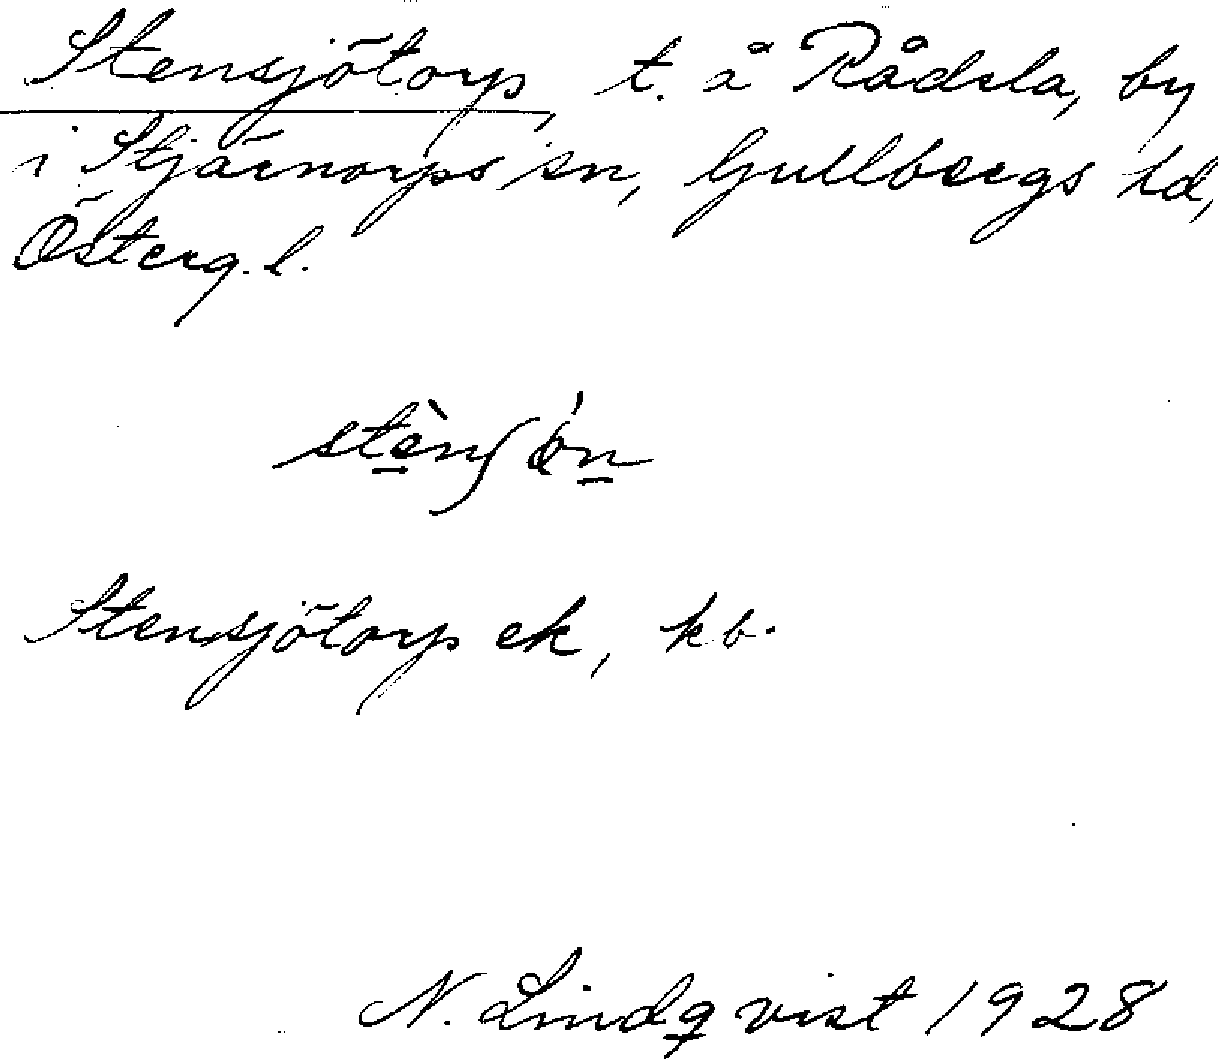 Stensjötorp, t. å Rådsla, by
i Stjärnorps sn, Gullbergs hd,
Österg. l.
stènʃö́n
Stensjötorp ek, kb.
N. Lindqvist 1928